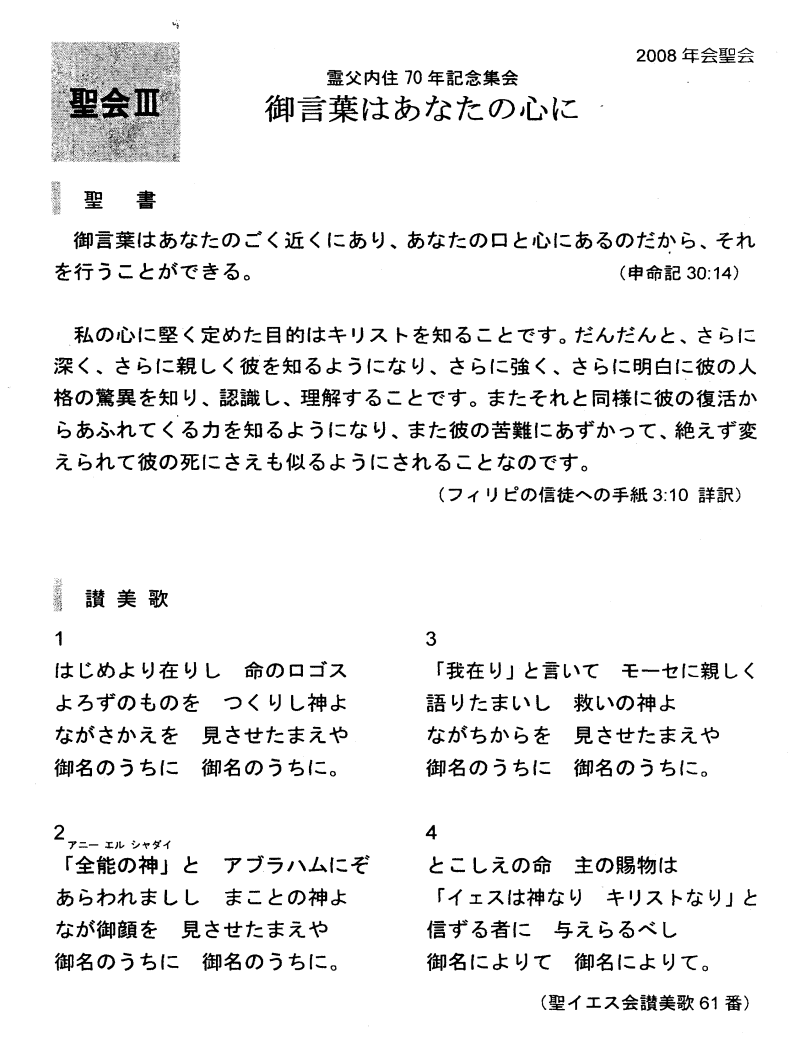 2008 年会聖会
聖会Ⅲ
霊父内住 70 年記念集会
御言葉はあなたの心に
聖　書
御言葉はあなたのごく近くにあり、あなたの口と心にあるのだから、それ
を行うことができる。　（申命記 30:14）
私の心に堅く定めた目的はキリストを知ることです。だんだんと、さらに
深く、さらに親しく彼を知るようになり、さらに強く、さらに明白に彼の人
格の驚異を知り、認識し、理解することです。またそれと同様に彼の復活か
らあふれてくる力を知るようになり、また彼の苦難にあずかって、絶えず変
えられて彼の死にさえも似るようにされることなのです。
（フィリピの信徒への手紙 3:10 詳訳）
讃美歌
1
はじめより在りし　命のロゴス
よろずのものを　つくりし神よ
ながさかえを　見させたまえや
御名のうちに　御名のうちに。
2
アニー エル シャダイ
「全能の神」と　アブラハムにぞ
あらわれましし　まことの神よ
なが御顔を　見させたまえや
御名のうちに　御名のうちに。
3
「我在り」と言いて　モーセに親しく
語りたまいし　救いの神よ
ながちからを　見させたまえや
御名のうちに　御名のうちに。
4
とこしえの命　主の賜物は
「イェスは神なり　キリストなり」と
信ずる者に　与えらるべし
御名によりて　御名によりて。
（聖イエス会讃美歌 61 番）